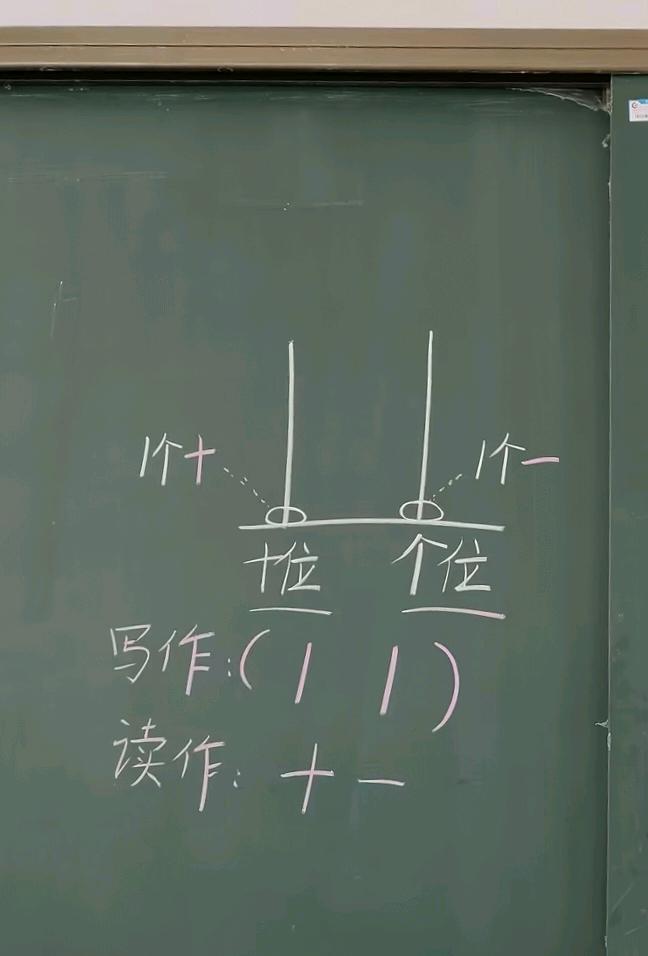 1个十 1个一
十位 个位
写作:( 1 1 )
读作: 十一